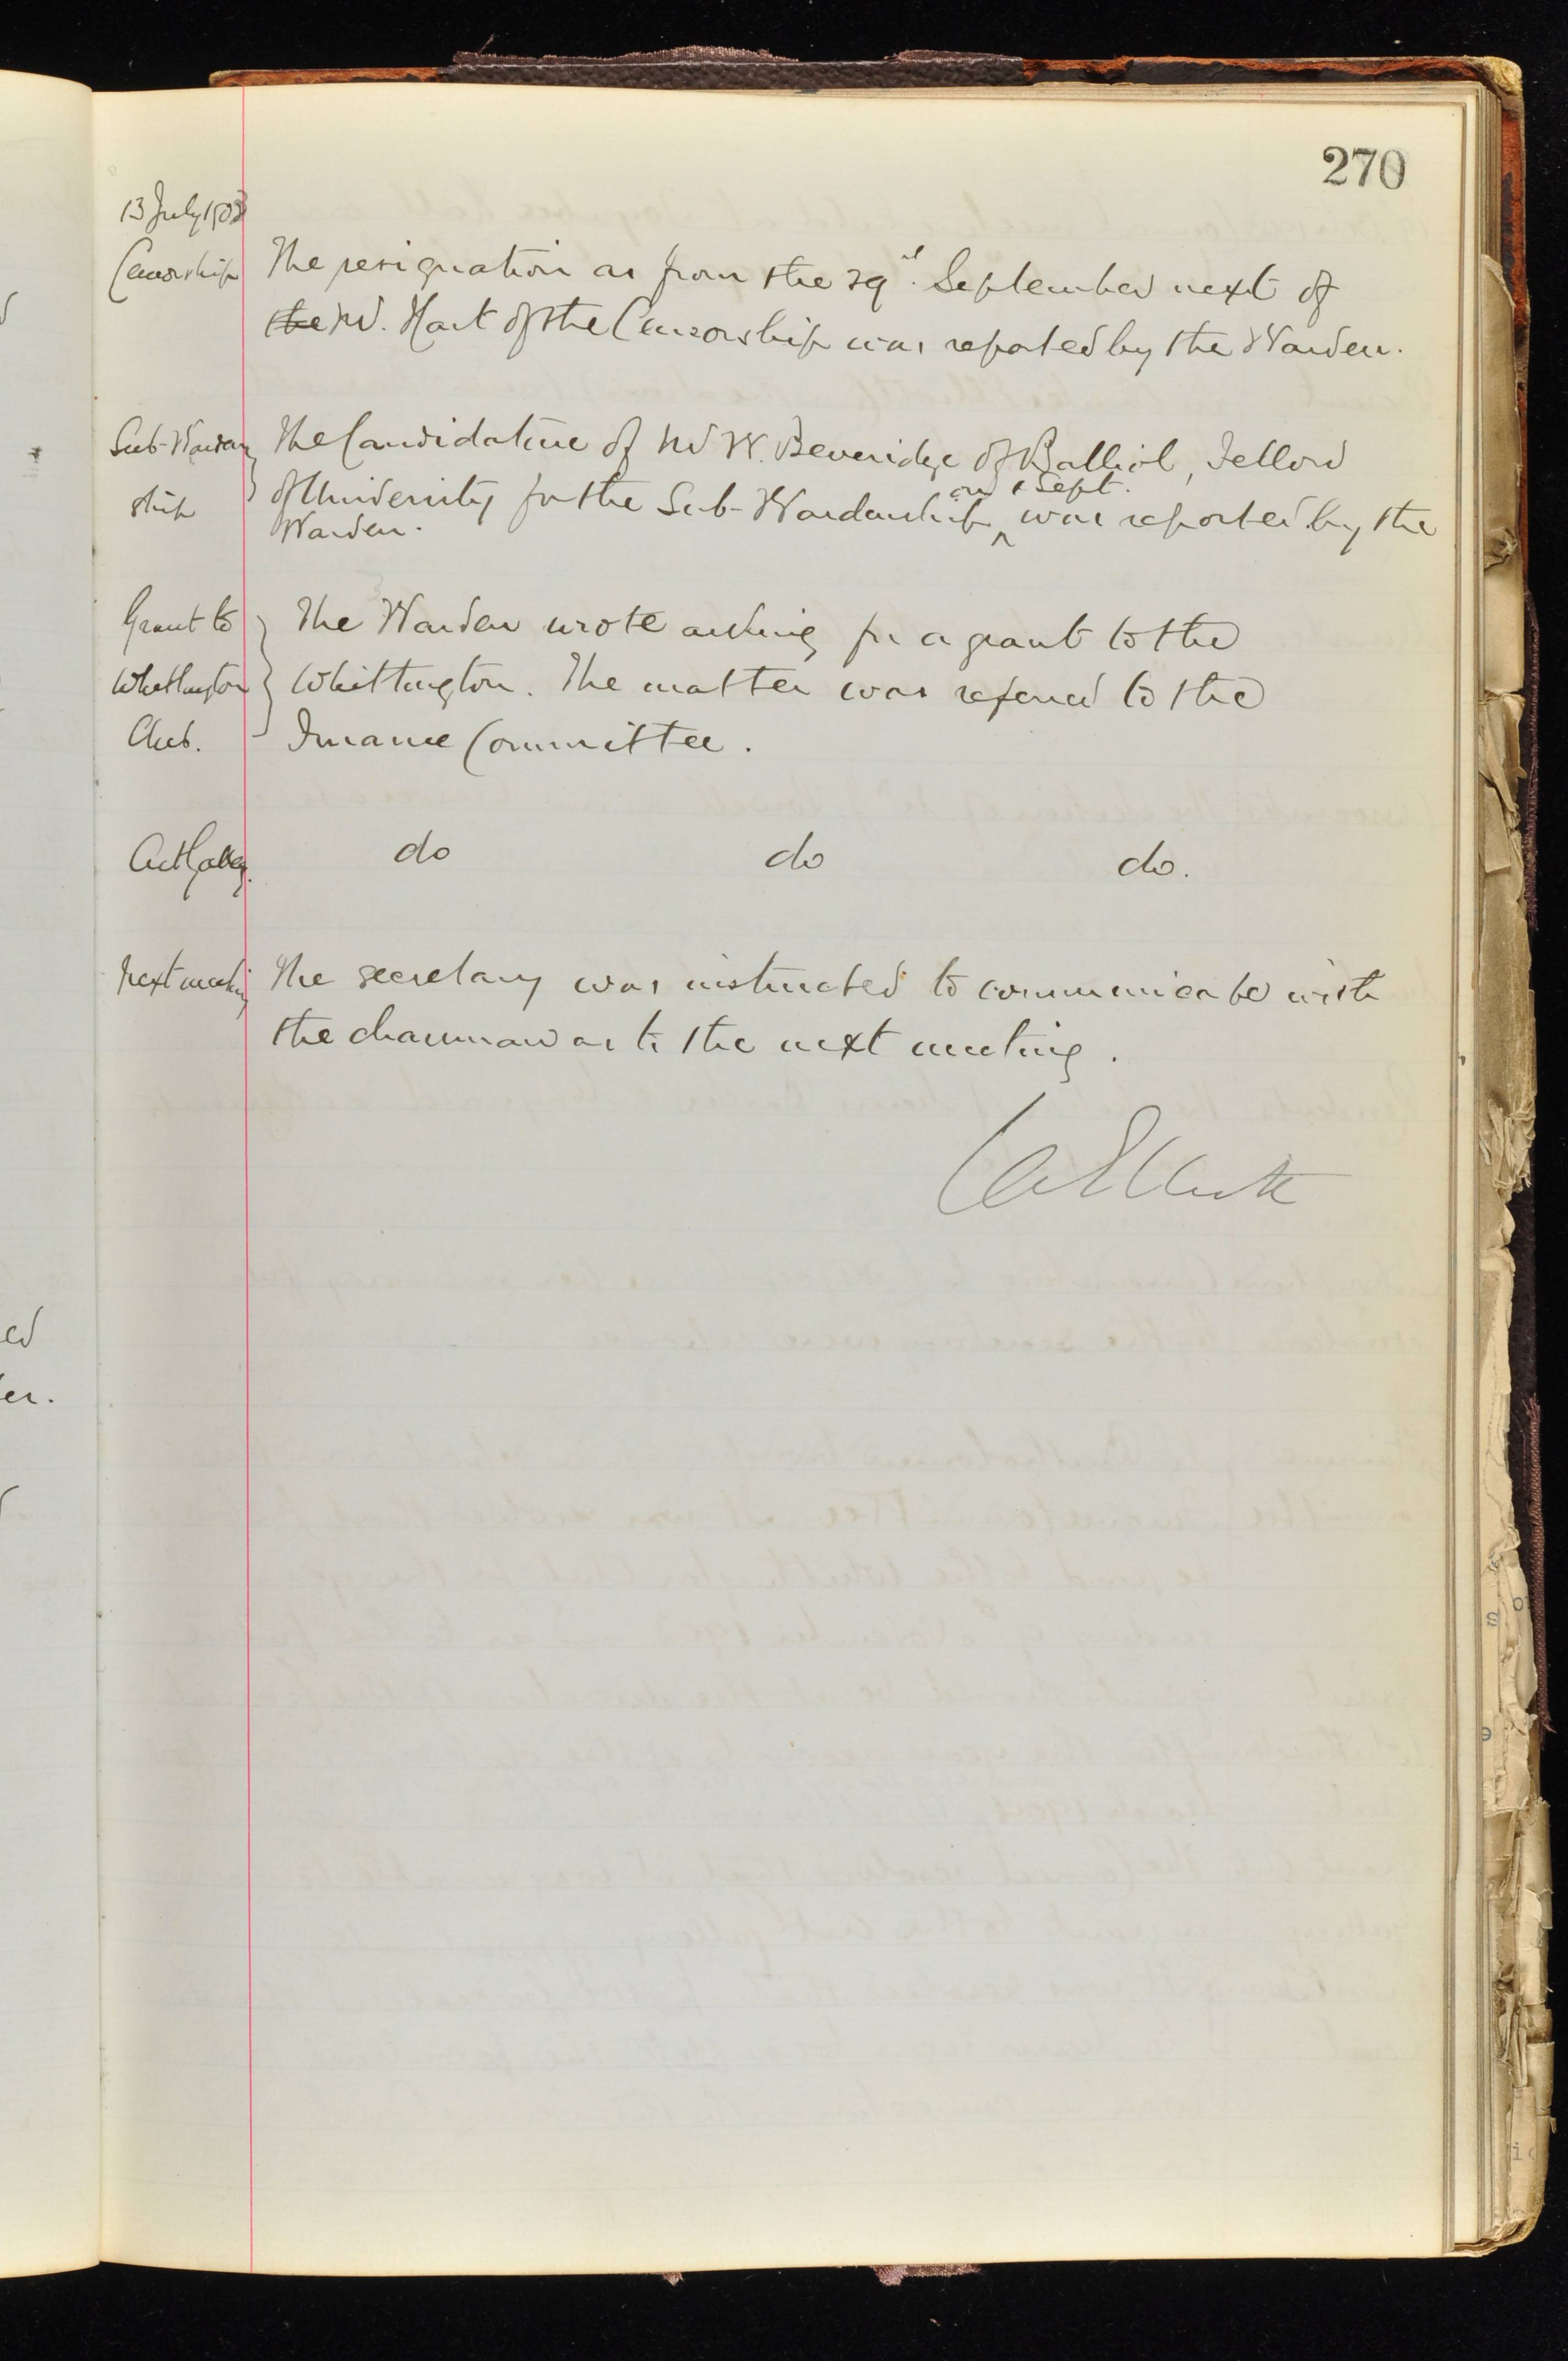 270
13 July 1903
Censorship
The resignation as from the 29th. September next of
the Mr. Hart of the Censorship was reported by the Warden.
Sub-Warden
ship
The Candidature of Mr W. Beveridge of Balliol, Fellow
of University for the Sub-Wardenship on 1 Sept. was reported by the
Warden.
Grant to
Whittington
Club.
The Warden wrote asking for a grant to the
Whittington. The matter was referred to the
Finance Committee.
Art Gallery.
do do do.
Next meeting
The secretary was instructed to communicate with
the chairman as to the next meeting.